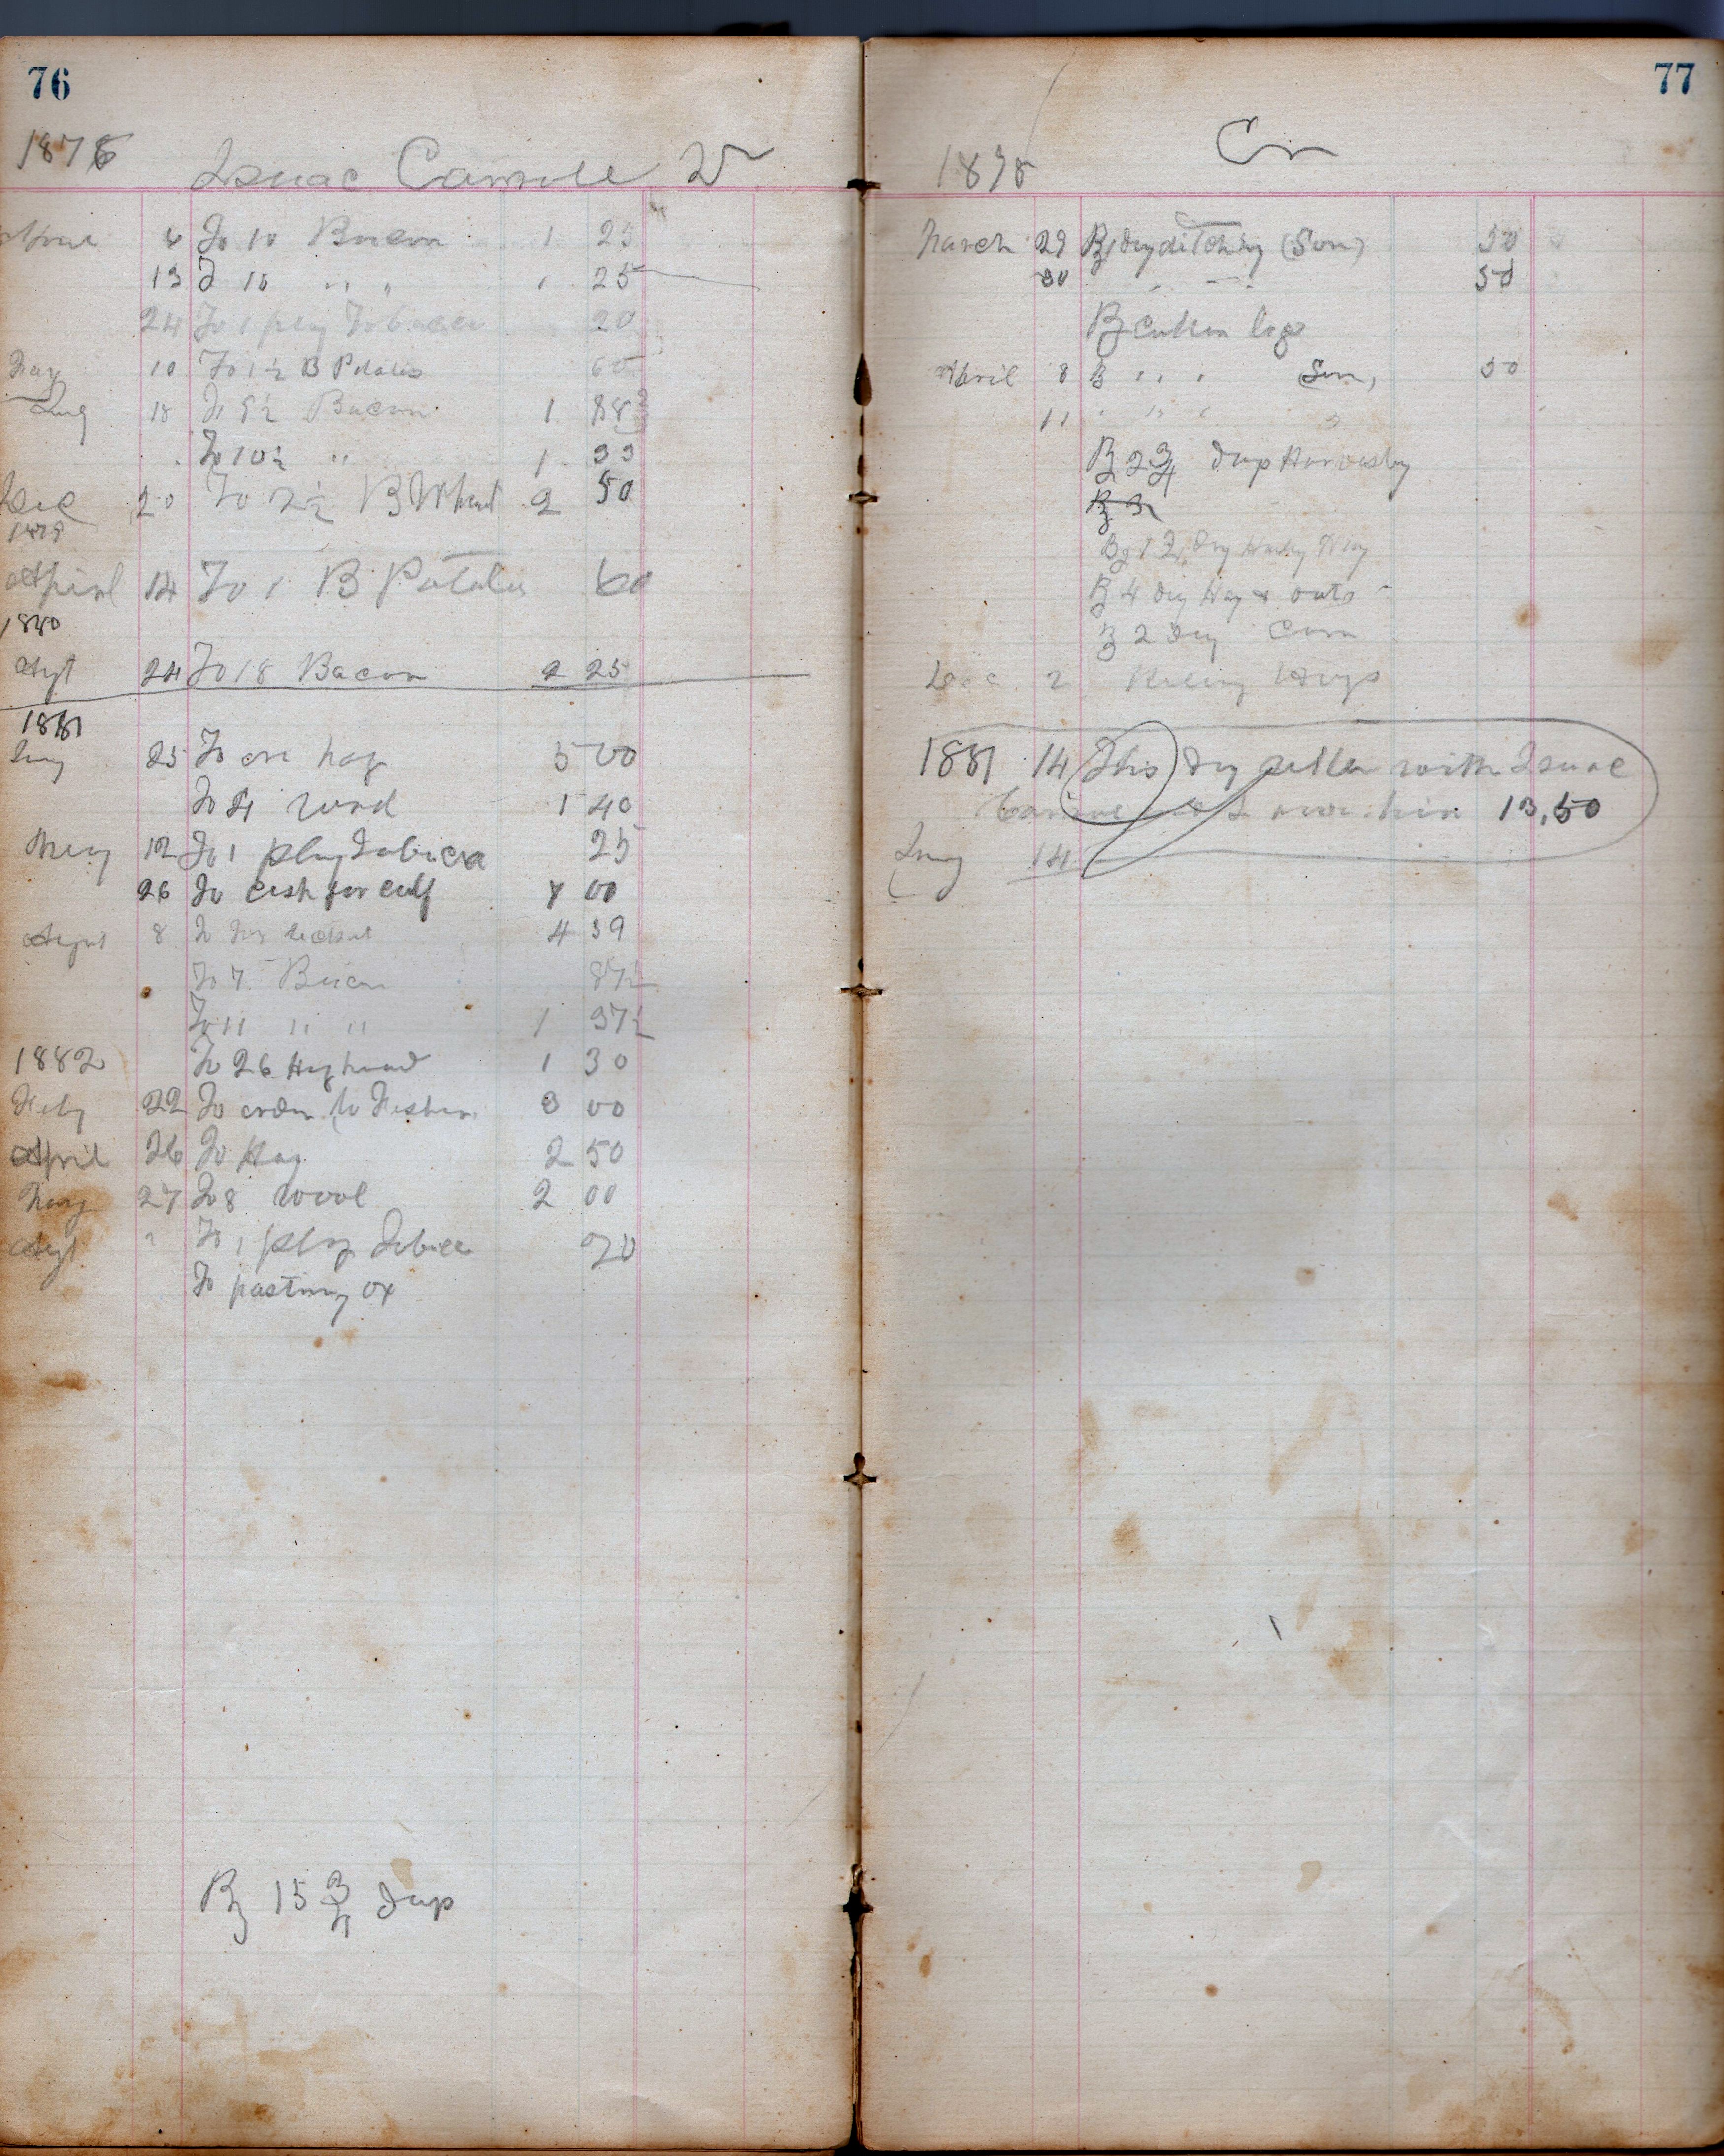 76
1878
Isuac Carrole Dr
April 4 To 10 Bacon 1 25
13 T 10 " " 1 25
24 To 1 plug Tobacca 20
May 10 To 1½ B Potatoes 60
Aug 18 To 9½ Bacon 1
To 10½ " 1 33
Dec 20 To 2½ B Wheat 2 50
1879
April 14 To 1 B Potatoes 60
1880
Agt 24 To 18 Bacon 2 25
1881
25 To one hog 5 00
To 4 1 40
May 12 To 1 plug Tobacca 25
26 To cash for calf 7 00
August 8 To 4 39
To 7 Bacon 87½
To 11 " " 1 37½
1882 To 26 Hog head 1 30
Feby 22 To order to 3 00
April 26 To Hog 2 50
May 27 To 8 wool 2 00
Agt " To 1 plug Tobacca 20
To pasturing ox
By 15 3/4 days
77
1878 Cr
March 29 By 1 day ditching (Son) 50
30 " " " 50
By cutten logs
April 8 B " " " Son, 50
11 " " "
By 2 3/4 days Harvesting
By 3
By 1 day Hay
By 4 day Hay & oats
B 2 day Corn
Dec 2 Killing Hogs
1881 14 This day settle with Isuac
Carrole & I owe him 13,50
14